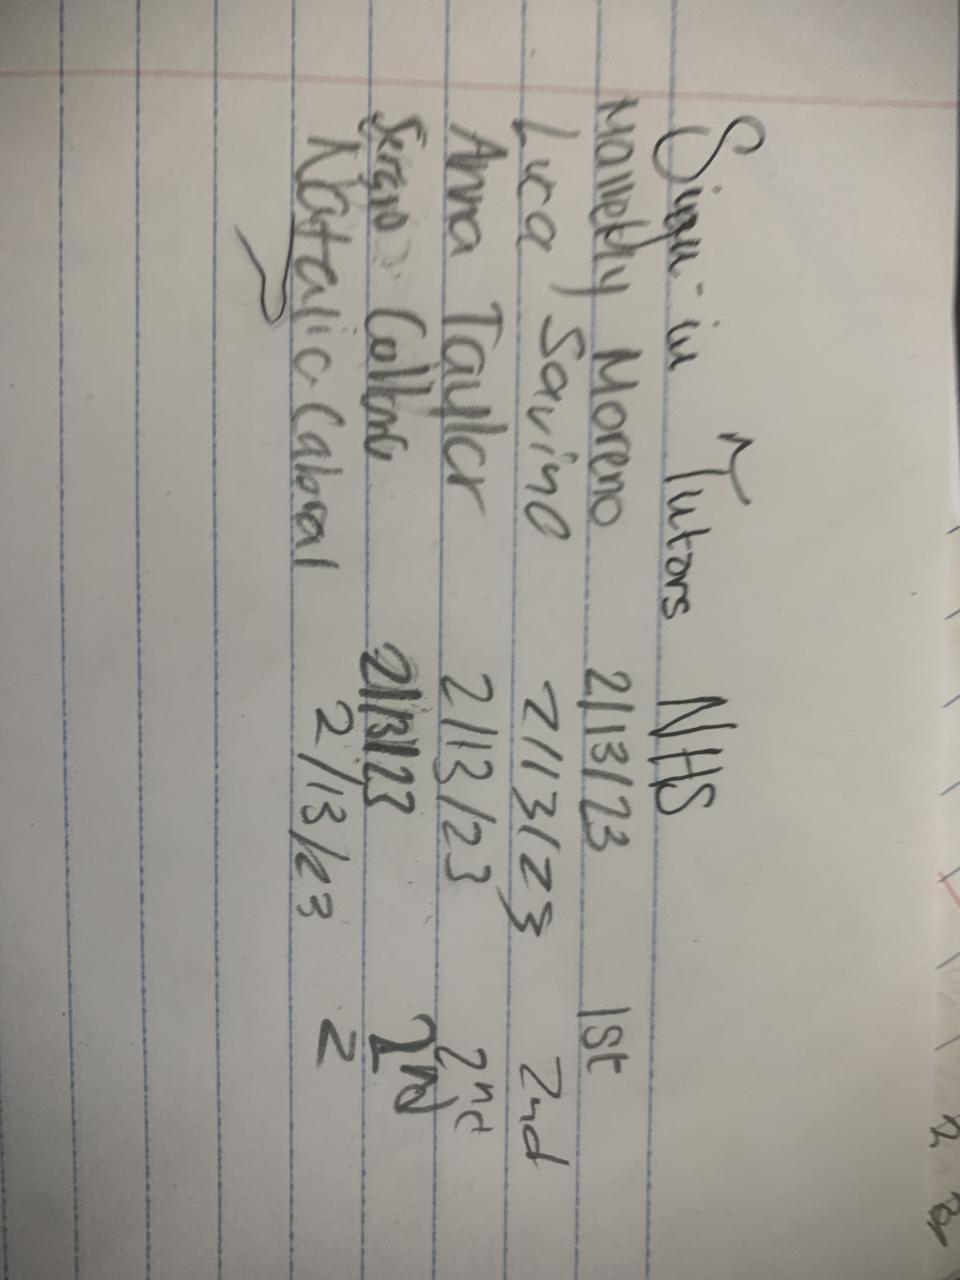 Sign-in Tutors NHS
Moreno 2/13/23 1st
Luca Savino 2/13/23 2nd
Anna Taylor 2/13/23 2nd
Sergio 2/13/23 2nd
Natalie Cabral 2/13/23 2